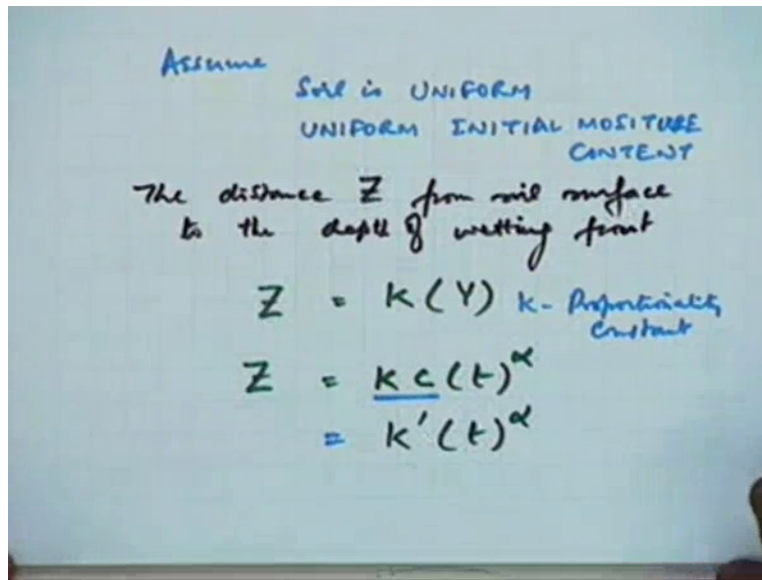 Assume
Soil is UNIFORM
UNIFORM INITIAL MOSITURE
CONTENT
The distance Z from soil surface
to the depth of wetting front
Z = K(Y) K - Proportionality
Constant
Z = K C (t)^α
= K′ (t)^α